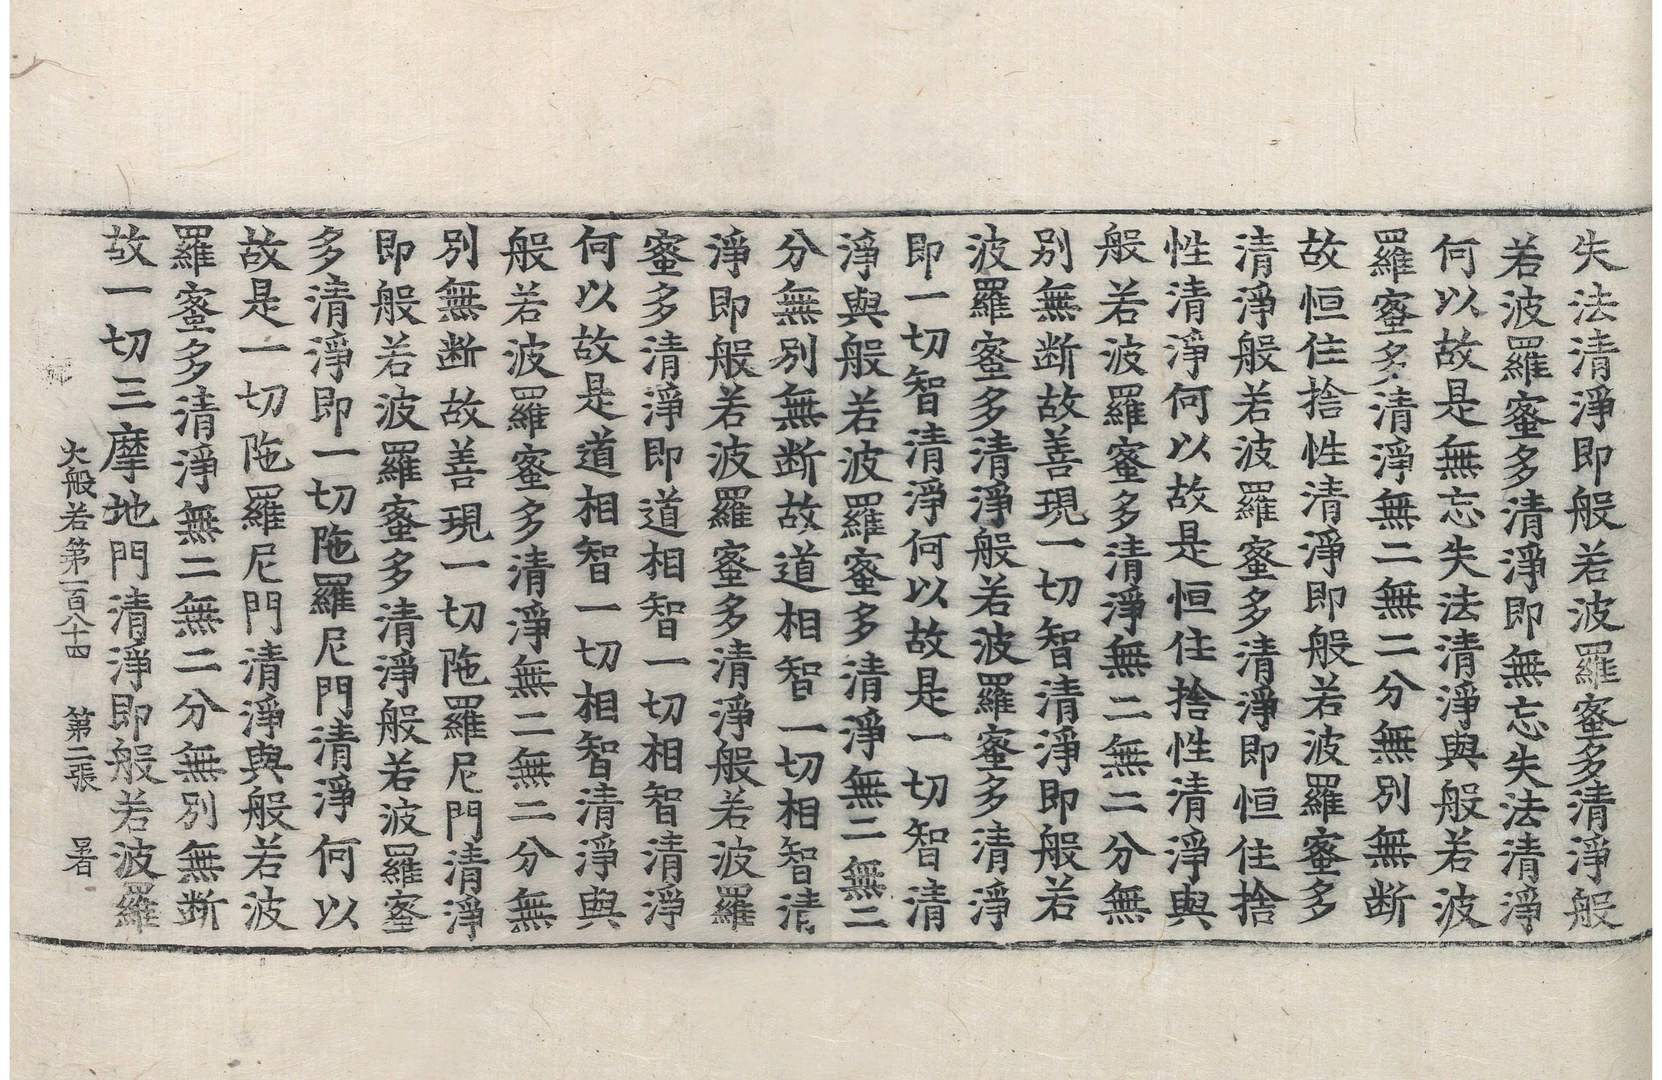 失法清淨即般若波羅蜜多清淨般
若波羅蜜多清淨即無忘失法清淨
何以故是無忘失法清淨與般若波
羅蜜多清淨無二無二分無別無断
故恒住捨性清淨即般若波羅蜜多
清淨般若波羅蜜多清淨即恒住捨
性清淨何以故是恒住捨性清淨與
般若波羅蜜多清淨無二無二分無
別無断故善現一切智清淨即般若
波羅蜜多清淨般若波羅蜜多清淨
即一切智清淨何以故是一切智清
淨與般若波羅蜜多清淨無二無二
分無別無断故道相智一切相智清
淨即般若波羅蜜多清淨般若波羅
蜜多清淨即道相智一切相智清淨
何以故是道相智一切相智清淨與
般若波羅蜜多清淨無二無二分無
別無断故善現一切陁羅尼門清淨
即般若波羅蜜多清淨般若波羅蜜
多清淨即一切陁羅尼門清淨何以
故是一切陁羅尼門清淨與般若波
羅蜜多清淨無二無二分無別無断
故一切三摩地門清淨即般若波羅
大般若第一百八十四 第二張 暑